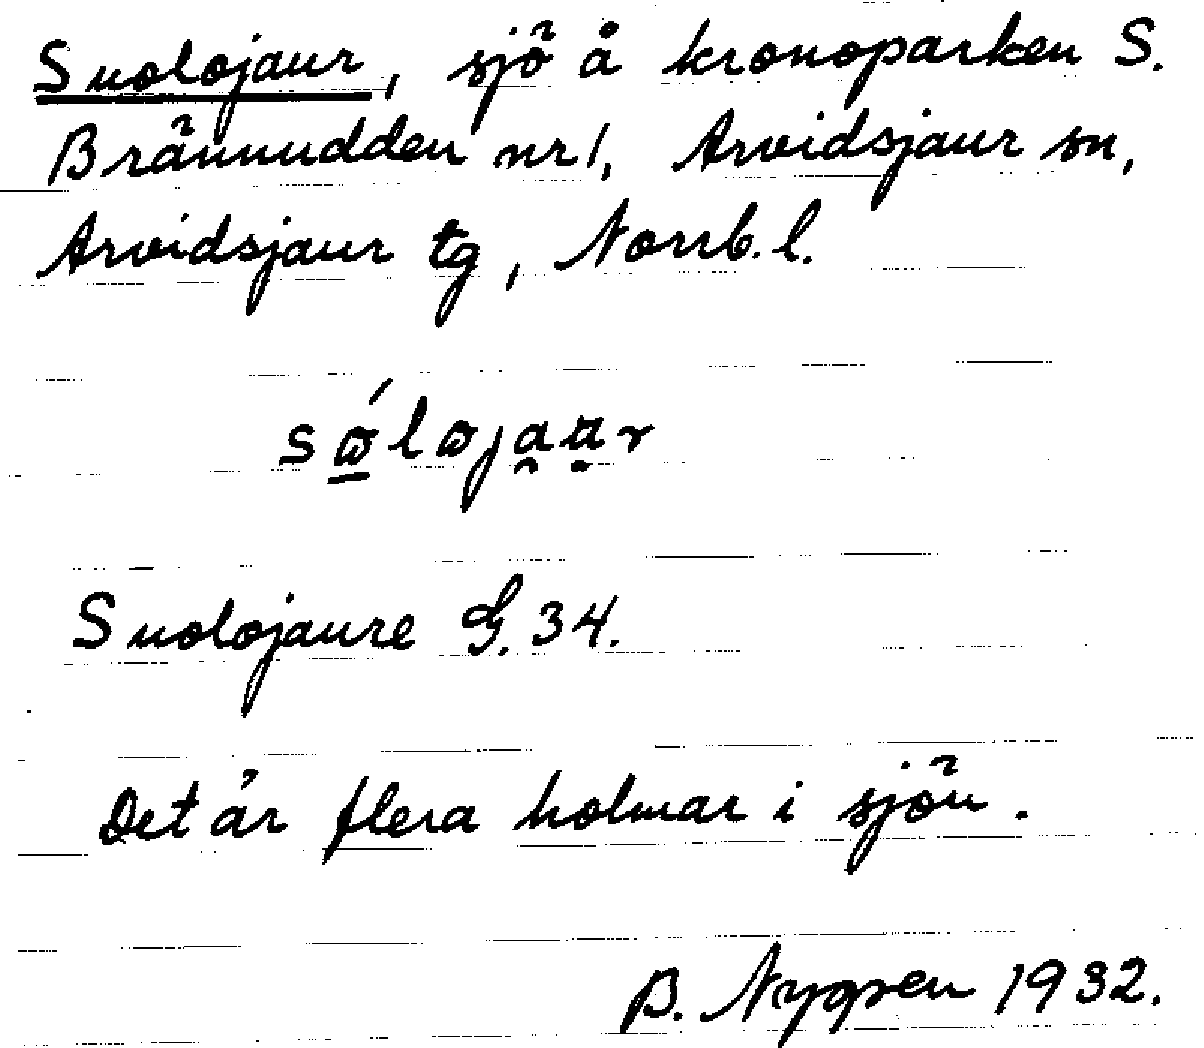 Suolojaur, sjö å kronoparken S.
Brännudden nr 1, Arvidsjaur sn,
Arvidsjaur tg, Norrb. l.
Suolojaure G. 34.
Det är flera holmar i sjön.
B. Nygren 1932.